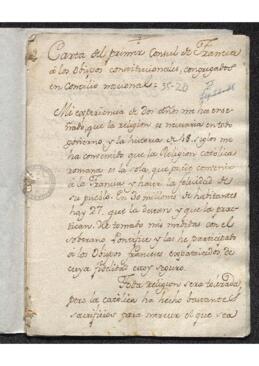 Carta del primer Consul de Francia
á los Obispos constitucionales, congregados
en Concilio nacional.
35-20
Mi experiencia de dos años me ha ense-
ñado, que la religion es necesaria en todo
govierno, y la historia de 18. siglos me
ha convencido que la Religion catolica
romana es la sola, que puede convenir
á la Francia y hacer la felicidad de
su pueblo. En 30 millones de habitantes
hay 27. que la desean y que la prac-
tican. He tomado mis medidas con el
soberano Pontifice y las he participado
á los Obispos franceses expatriados de
cuya fidelidad estoy seguro.
Toda religion será tolerada,
pero la catolica ha hecho bastantes
sacrificios para merecer el que sea